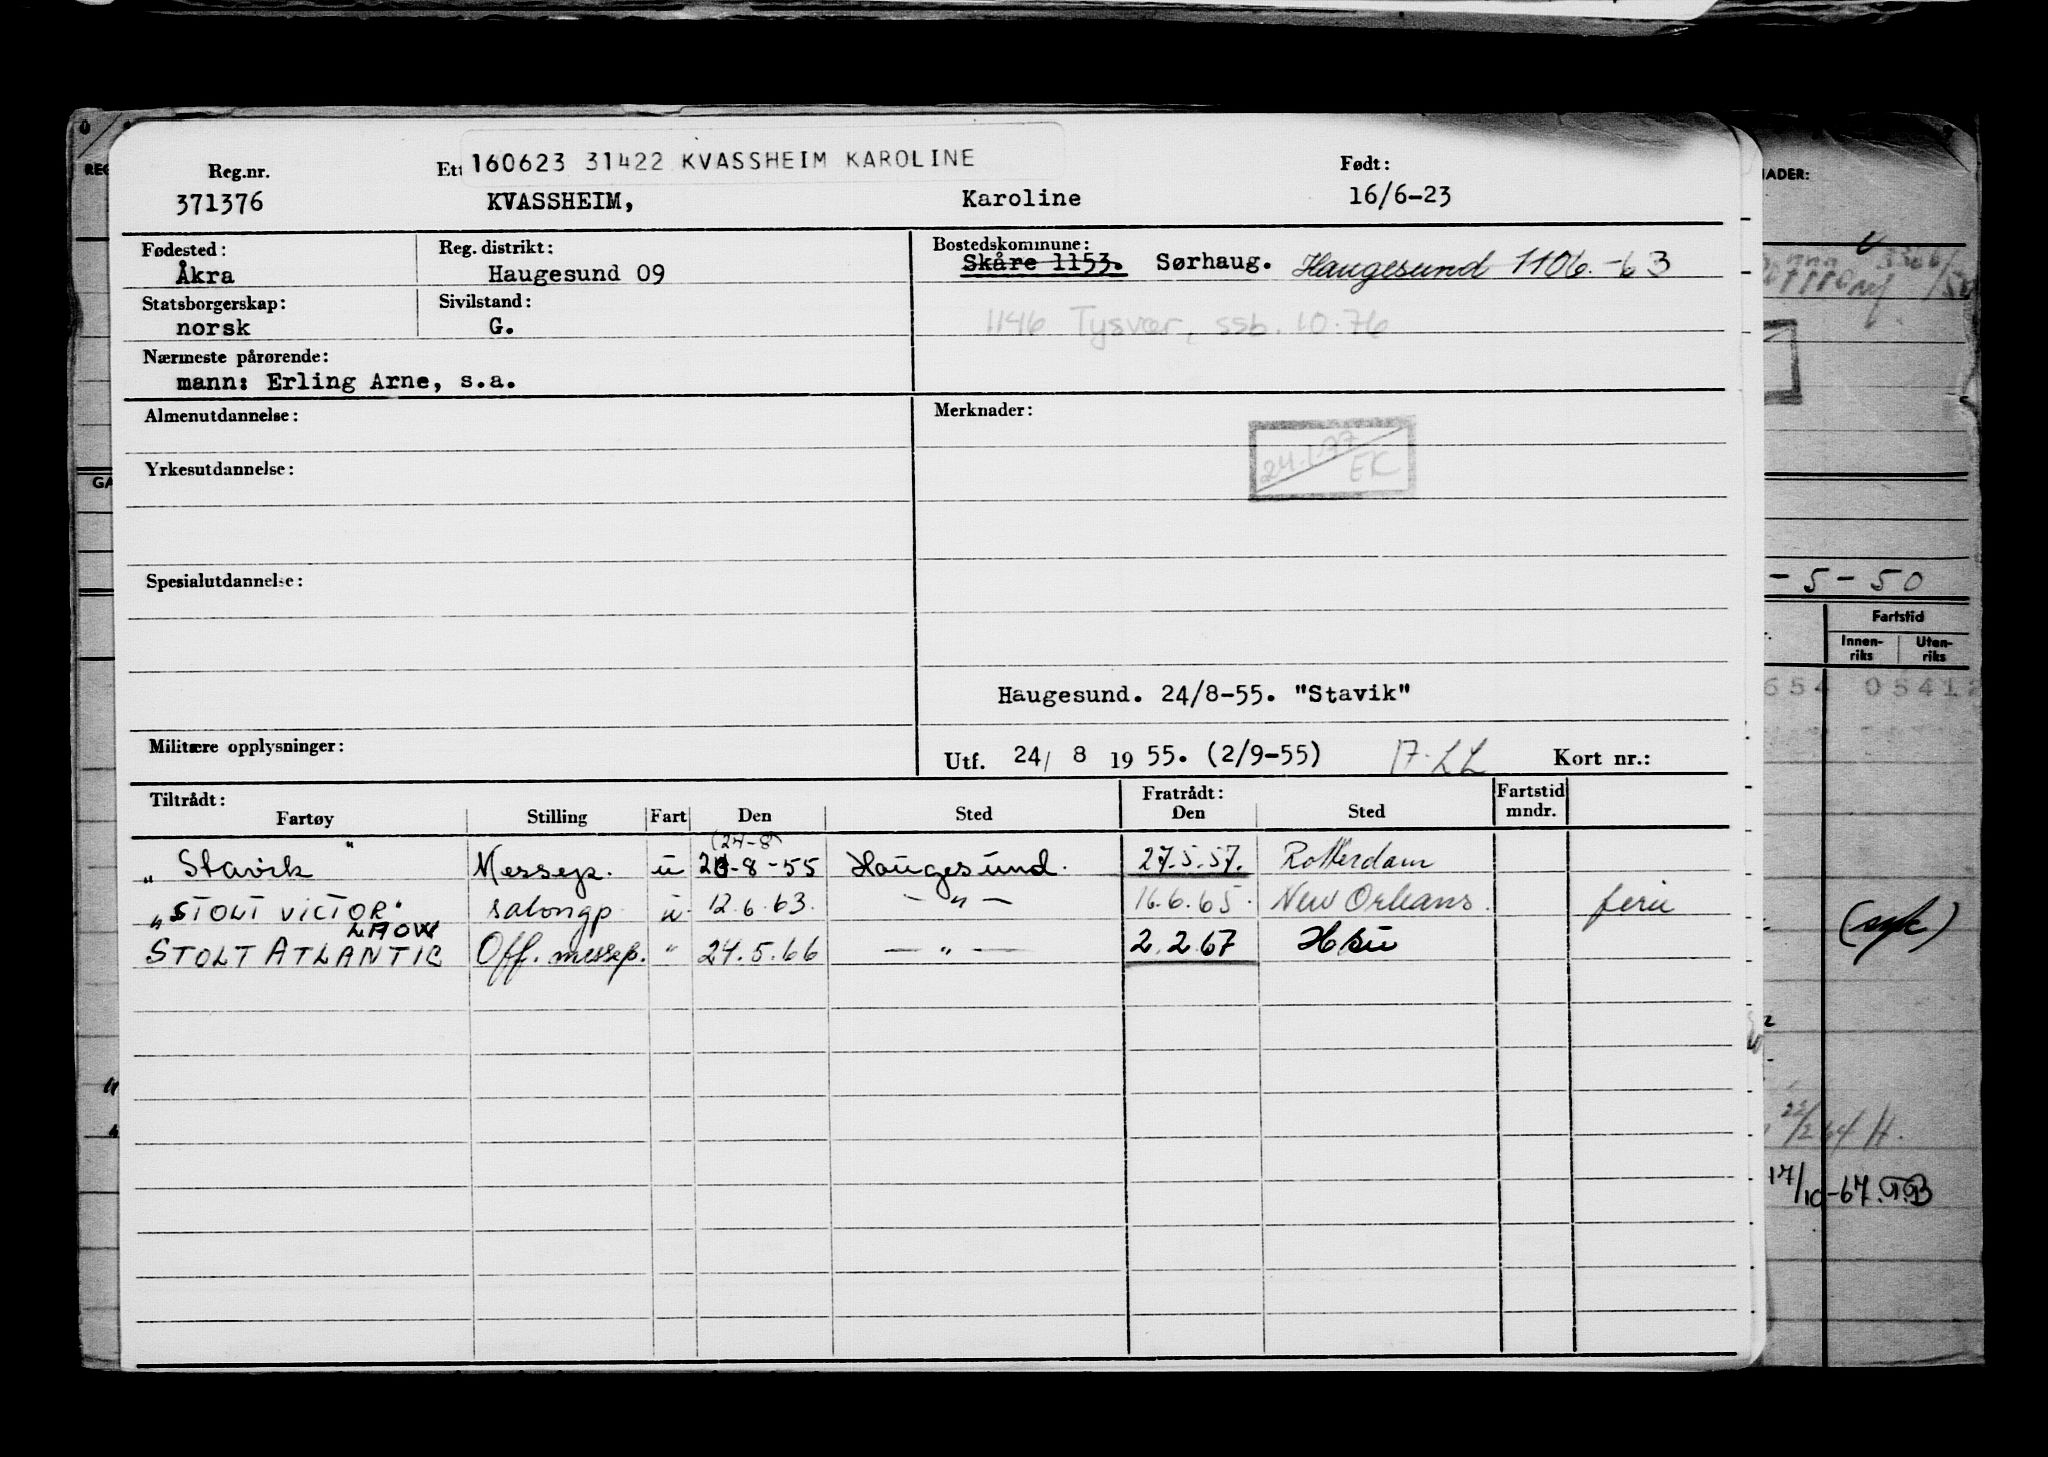 160623 31422 KVASSHEIM KAROLINE
Reg.nr. Ett Født:
371376 KVASSHEIM, Karoline 16/6-23
Fødested: Reg. distrikt: Bostedskommune:
Åkra Haugesund 09 Skåre 1153. Sørhaug. Haugesund 1106.-63
Statsborgerskap: Sivilstand:
norsk G. 1146 Tysvær, ssb. 10.76
Nærmeste pårørende:
mann: Erling Arne, s.a.
Almenutdannelse: Merknader:
24.1.77
EK
Yrkesutdannelse:
Spesialutdannelse:
Haugesund. 24/8-55. "Stavik"
Militære opplysninger: Utf. 24/ 8 1955. (2/9-55) Kort nr.:
Tiltrådt: Fratrådt: Fartstid
Fartøy Stilling Fart Den Sted Den Sted mndr.
(24-8)
„Stavik" Messep. u -8-55 Haugesund. 27.5.57. Rotterdam
„STOLT VICTOR" salongp. u. 12.6.63. — " — 16.6.65. New Orleans. ferie
STOLT ATLANTIC Off. messep. " 24.5.66 — " — 2.2.67 Hsu
REG
GA
NADER:
-5-50
Fartstid
Innen-
riks
Uten-
riks
654 05412
(syk)
22/2 64 H.
17/10-67. T.B